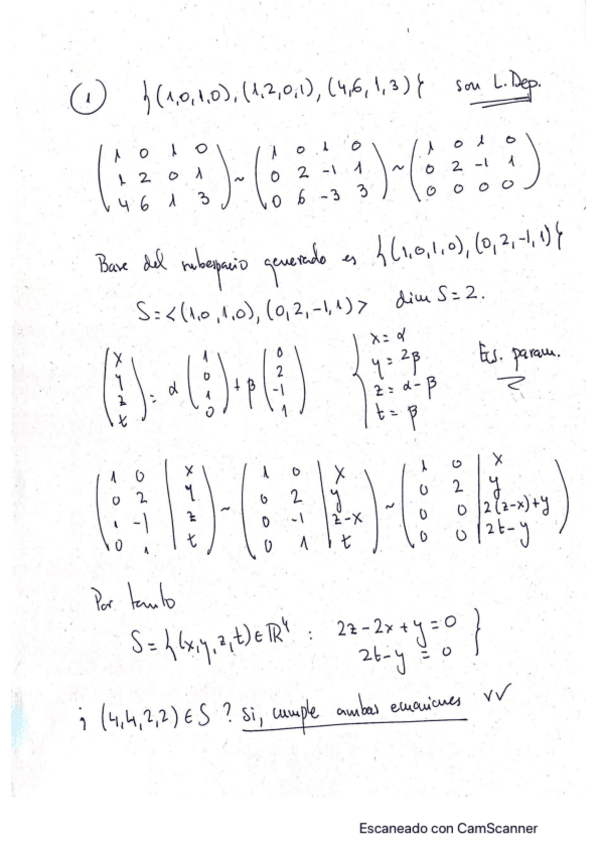 1 {(1,0,1,0), (1,2,0,1), (4,6,1,3)} son L.Dep.
(1 0 1 0 / 1 2 0 1 / 4 6 1 3) ~ (1 0 1 0 / 0 2 -1 1 / 0 6 -3 3) ~ (1 0 1 0 / 0 2 -1 1 / 0 0 0 0)
Base del subespacio generado es {(1,0,1,0), (0,2,-1,1)}
S=<(1,0,1,0), (0,2,-1,1)> dim S=2.
(x / y / z / t) = α (1 / 0 / 1 / 0) + β (0 / 2 / -1 / 1) { x=α / y=2β / z=α-β / t=β Ecs. param.
(1 0 | x / 0 2 | y / 1 -1 | z / 0 1 | t) ~ (1 0 | x / 0 2 | y / 0 -1 | z-x / 0 1 | t) ~ (1 0 | x / 0 2 | y / 0 0 | 2(z-x)+y / 0 0 | 2t-y)
Por tanto
S={(x,y,z,t)∈ℝ⁴ : 2z-2x+y=0 / 2t-y=0}
¿(4,4,2,2)∈S? Si, cumple ambas ecuaciones ✓✓
Escaneado con CamScanner